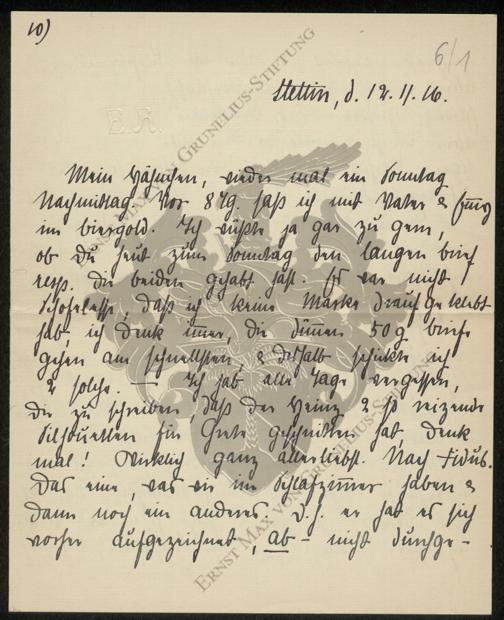 10)
6/1
Stettin, d. 12. 11. 16.
E.R.
Mein Häschen, wieder mal ein Sonntag
Nachmittag. Vor 8 Tg. saß ich mit Vater &
im Ich wüßte ja gar zu gern,
ob Du heut zum Sonntag den langen Brief
resp. die beiden gehabt hast. Es war nicht
daß ich keine Marke drauf geklebt
hab, ich denk immer, die dünnen 50 g Briefe
gehen am schnellsten, & deshalb schickte ich
2 solche. — Ich hab alle Tage vergessen,
Dir zu schreiben daß der Heinz 2 so reizende
Silhouetten für Grete geschnitten hat, denk
mal! Wirklich ganz allerliebst. Nach Fidus.
Das eine, was wir im Schlafzimmer haben &
dann noch ein anderes. D.h. er hat es sich
vorher aufgezeichnet, ab - nicht durchge-
ERNST MAX VON GRUNELIUS-STIFTUNG
ERNST MAX VON GRUNELIUS-STIFTUNG